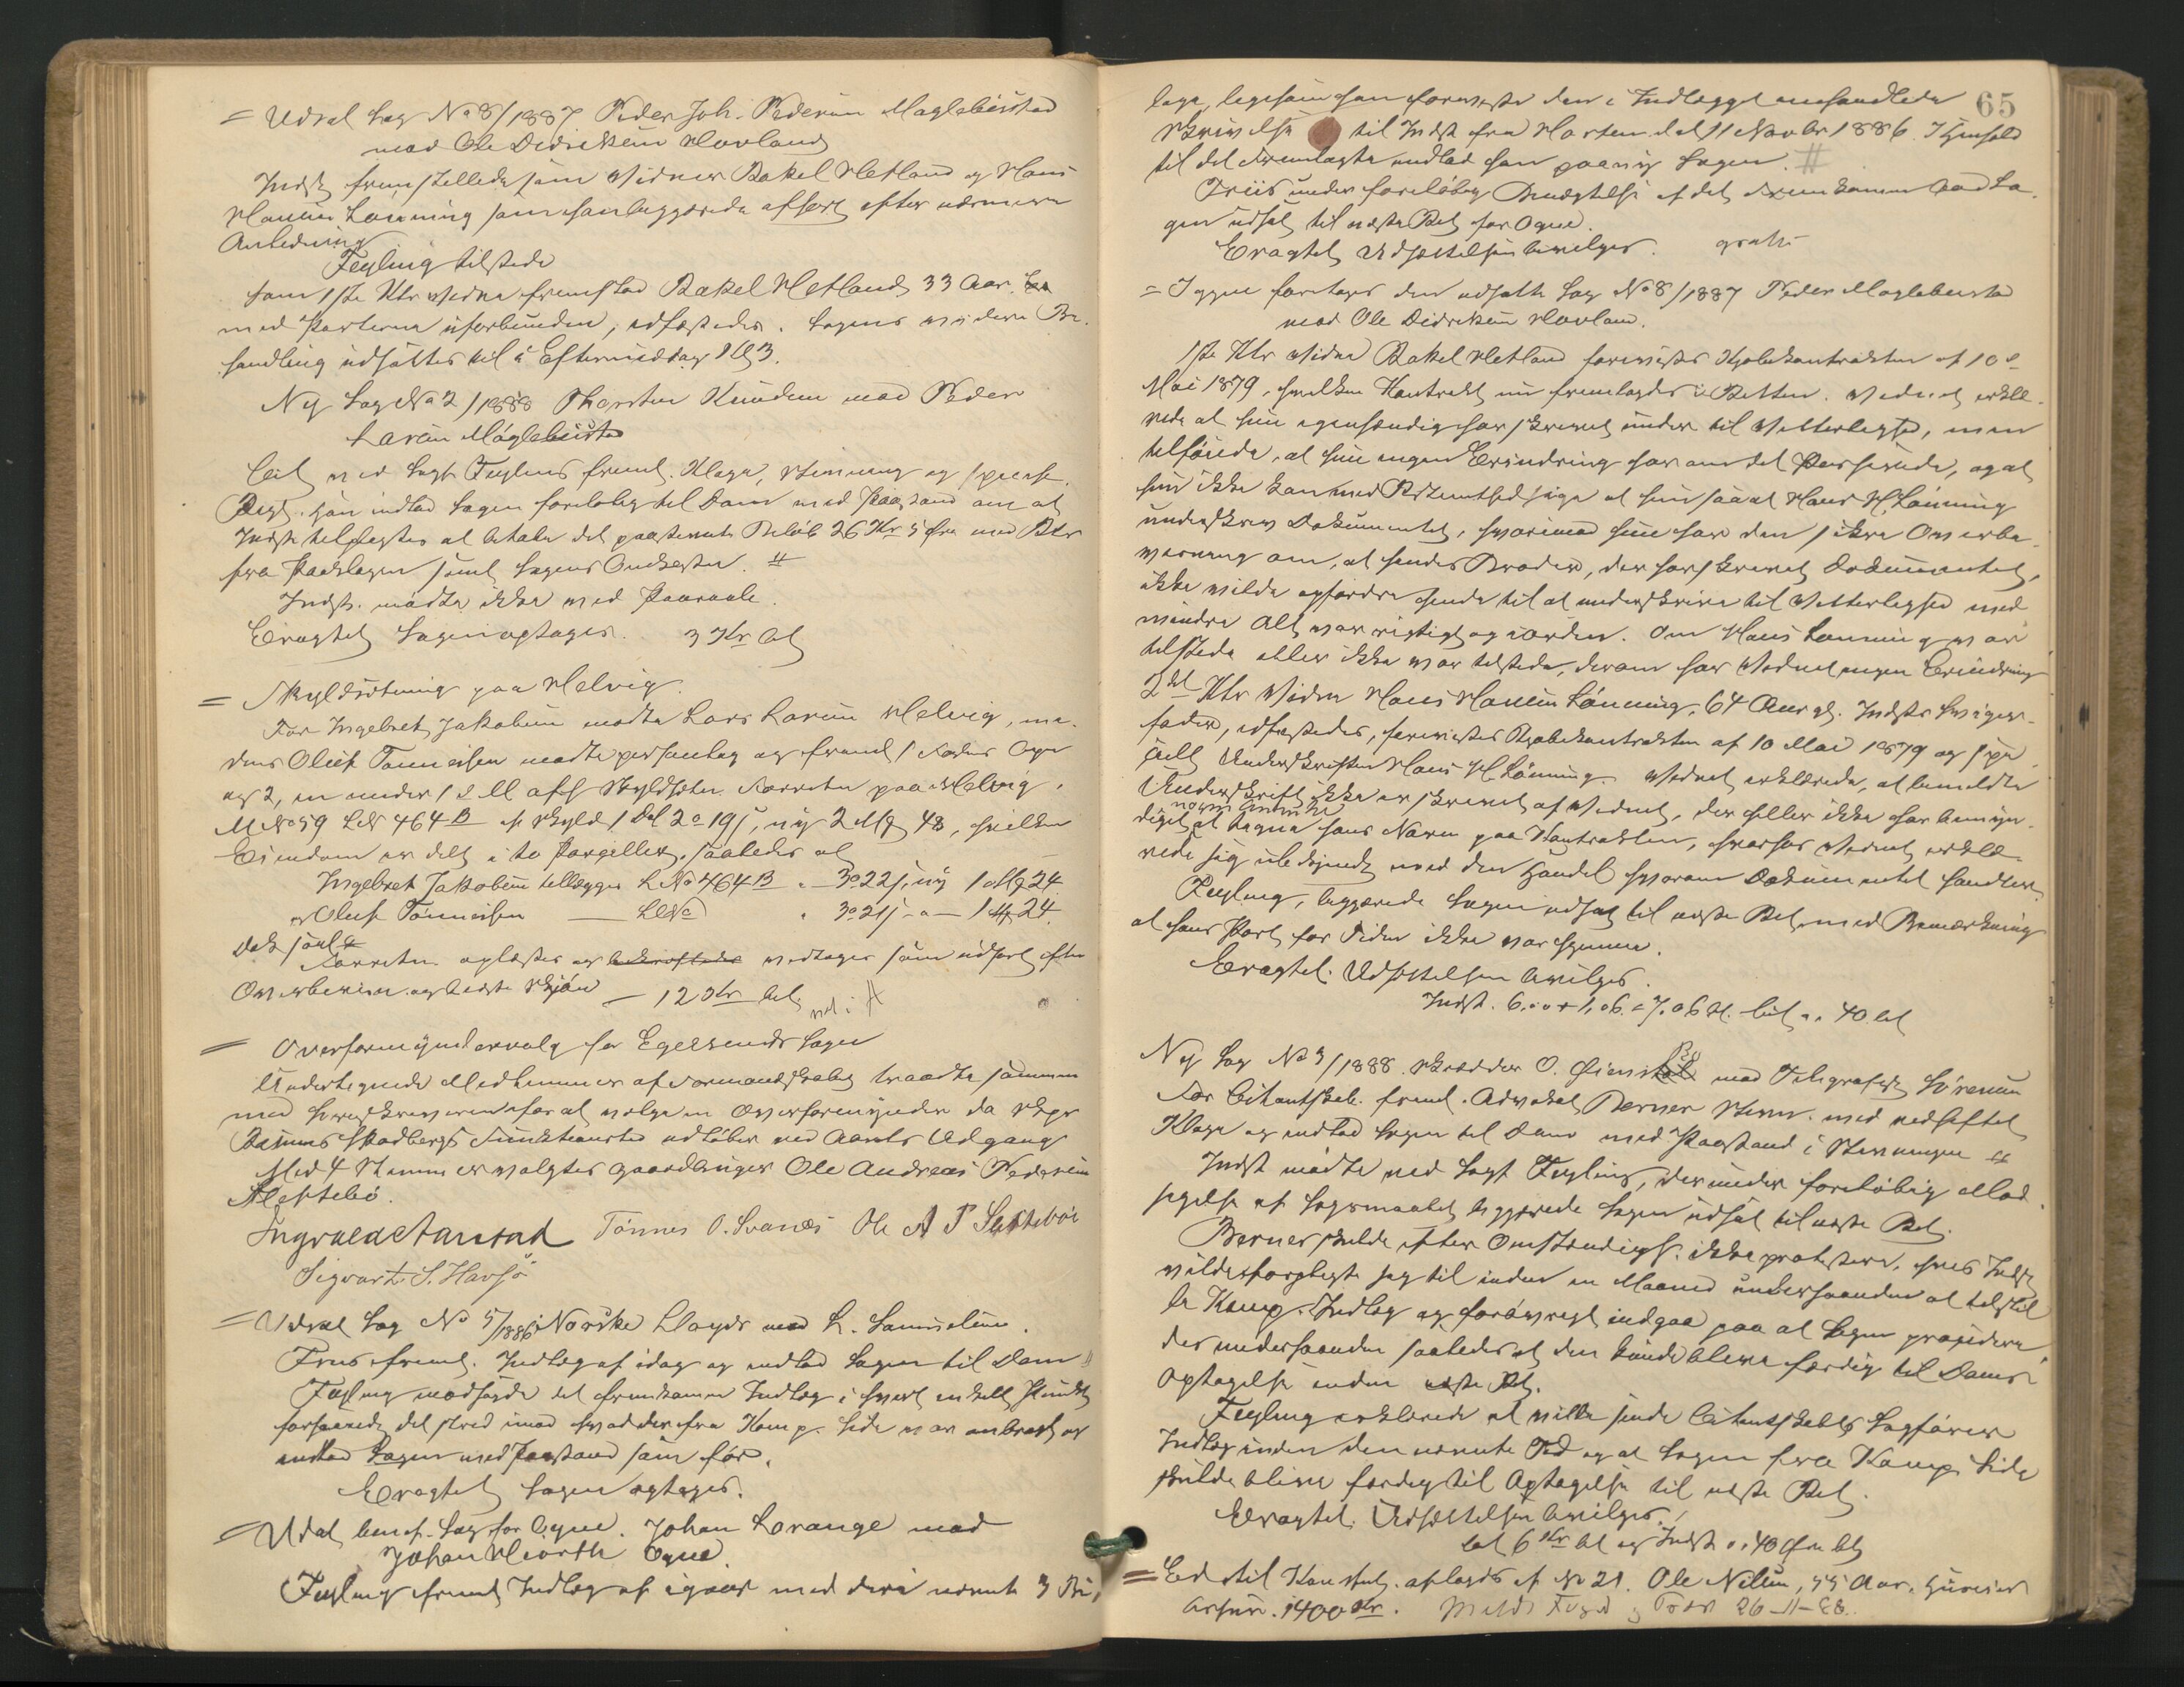 = Udsat Sag No 8/1887 Peder Joh. Pedersen Maglebustad
mod Ole Didriksen Hovland
Indst fremstillede som Vidner Rakel Hetland og Hans
Hansen Lönning som han begjærede afhørt efter nærmere
Anledning
Feyling tilstede
Som 1ste Ktr Vidne fremstod Rakel Hetland 33 Aar
med Parterne uforbunden, edfæstedes. Sagens videre Be-
handling udsattes til i Eftermiddag Kl 3.
Ny Sag No 2/1888 Thorsten Knudsen mod Peder
Larsen Maglebustad
Cit. ved Sagf. Feyling freml. Klage, Stevning og
Regl. Han indlod Sagen foreløbig til Dom med Paastand om at
Indst tilpligtes at betale det paastevnte Beløb 26 Kr 5 Øre med Rtr
fra Paaklagen samt Sagens Omkostn. #
Indst. mødte ikke ved Paaraab.
Eragtet Sagen optages. 3 Kr bt
= Skyldsætning paa Helvig.
For Ingebret Jakobsen mødte Lars Larsen Helvig, me-
dens Oluf Tønnesen mødte personlig og freml.
og 2, en under afh Skyldsætn. Forretn paa Helvig,
M No 59 LN 464 B af Skyld 1 Dal 2 o 19 s, ny 2 Mk 48, hvilken
Eiendom er delt i to Parceller, saaledes at
Ingebret Jakobsen tillægges LNo 464 B 3 o 22 s, ny 1 Mk 24
Oluf Tønnesen — LNo 3 o 21 s - a - 1 Mk 24
Forretn. oplæstes og vedtoges som udført efter
Overbevisn. og bedste Skjøn — 12 Kr bet
= Overformyndervalg for Egersunds Sogn
Undertegnede Medlemmer af Formandskabet traadte sammen
med Sorenskriveren for at vælge en Overformynder da
Rasmus Skadbergs Funktionstid udløber ved Aarets Udgang
Med 4 Stemmer valgtes Gaardbruger Ole Andreas Pedersen
Slettebö.
Ingvald Aarstad Tönnes O. Svanes Ole A P Sletteböe
Sigvart S. Havsö
= Udsat Sag No 5/1886 Norske Lloyds mod L. Samuelsen.
Friis freml. Indlæg af idag og indlod Sagen til Dom #
Feyling modsagde det fremkomne Indlæg i hvert enkelt Punkt
forsaavidt det stred imod hvad der fra Komp. Side var anbragt og
indlod Sagen med Paastand som før.
Eragtet Sagen optages.
= Udsat benef. Sag for Ogne. Johan Lorange mod
Johan Hiorth Ogne.
Feyling freml Indlæg af igaar med deri nævnte 3 Bi-
65
lage, ligesom han foreviste den i Indlægget omhandlede
Skrivelse til Indst fra Horten dat 11 Novbr 1886. I Henhold
til det Fremlagte indlod han paany Sagen. #
Friis under foreløbig Benægtelse af det Fremkomne bad Sa-
gen udsat til næste Ret for Ogne.
Eragtet Udsættelsen bevilges. gratis
= Igjen foretoges den udsatte Sag No 8/1887 Peder Maglebustad
mod Ole Didriksen Hovland.
1ste Ktr Vidne Rakel Hetland forevistes Kjøbekontrakten af 10de
Mai 1879, hvilken Kontrakt nu fremlagdes i Retten. Vidnet erklæ-
rede at hun egenhændig har skrevet under til Vitterlighed, men
tilføiede, at hun ingen Erindring har om det Passerede, og at
hun ikke kan med Bestemthed sige at hun saa at Hans H. Lönning
underskrev Dokumentet, hvorimod hun har den sikre Overbe-
visning om, at hendes Broder, der har skrevet Dokumentet,
ikke vilde opfordre hende til at underskrive til Vitterlighed med
mindre Alt var rigtigt og i Orden. Om Hans Lönning var
tilstede eller ikke var tilstede, derom har Vidnet ingen Erindring
2det Ktr Vidne Hans Hansen Lönning, 64 Aar gl. Indsts Sviger-
fader, edfæstedes, forevistes Kjøbekontrakten af 10 Mai 1879 og spe-
cielt Underskriften Hans H. Lönning. Vidnet erklærede, at bemeldte
Underskrift ikke er skrevet af Vidnet, der heller ikke har bemyn-
diget nogen Anden til at tegne hans Navn paa Kontrakten, hvorhos Vidnet erklæ-
rede sig ubekjendt med den Handel hvorom Dokumentet handler
Feyling, begjærede Sagen udsat til næste Ret, med Bemærkning
at hans Part for Tiden ikke var hjemme.
Eragtet. Udsættelsen bevilges.
Indst. 6,00 + 1,06 = 7,06 bt. Cit 0,40 bt
Ny Sag No 3/1888. Skrædder O. mod Telegrafist Sörensen
For Citantskab. freml. Advokat Berner Stevn. med vedheftet
Klage og indlod Sagen til Dom med Paastand i Stevningen #
Indst mødte ved Sagf. Feyling, der under foreløbig Mod-
sigelse af Søgsmaalet begjærede Sagen udsat til næste Ret.
Berner skulde efter Omstændigh. ikke protestere, hvis Indst
vilde forpligte sig til inden en Maaned underhaanden at tilstil-
le Komp. Indlæg og forøvrigt indgaa paa at Sagen procederes
der underhaanden saaledes at den kunde blive færdig til Doms
Optagelse inden næste Ret.
Feyling erklærede at ville sende Citantskabets Sagfører
Indlæg inden den nævnte Tid og at Sagen fra Komp. Side
skulde blive færdig til Optagelse til næste Ret.
Eragtet. Udsættelsen bevilges.
Cit 6 Kr bt og Indst 0,40 Øre bt
= Ed til Konstit. aflagdes af No 21. Ole Nilsen, 55 Aar, Huseier
1400 Kr. 26-11-88.